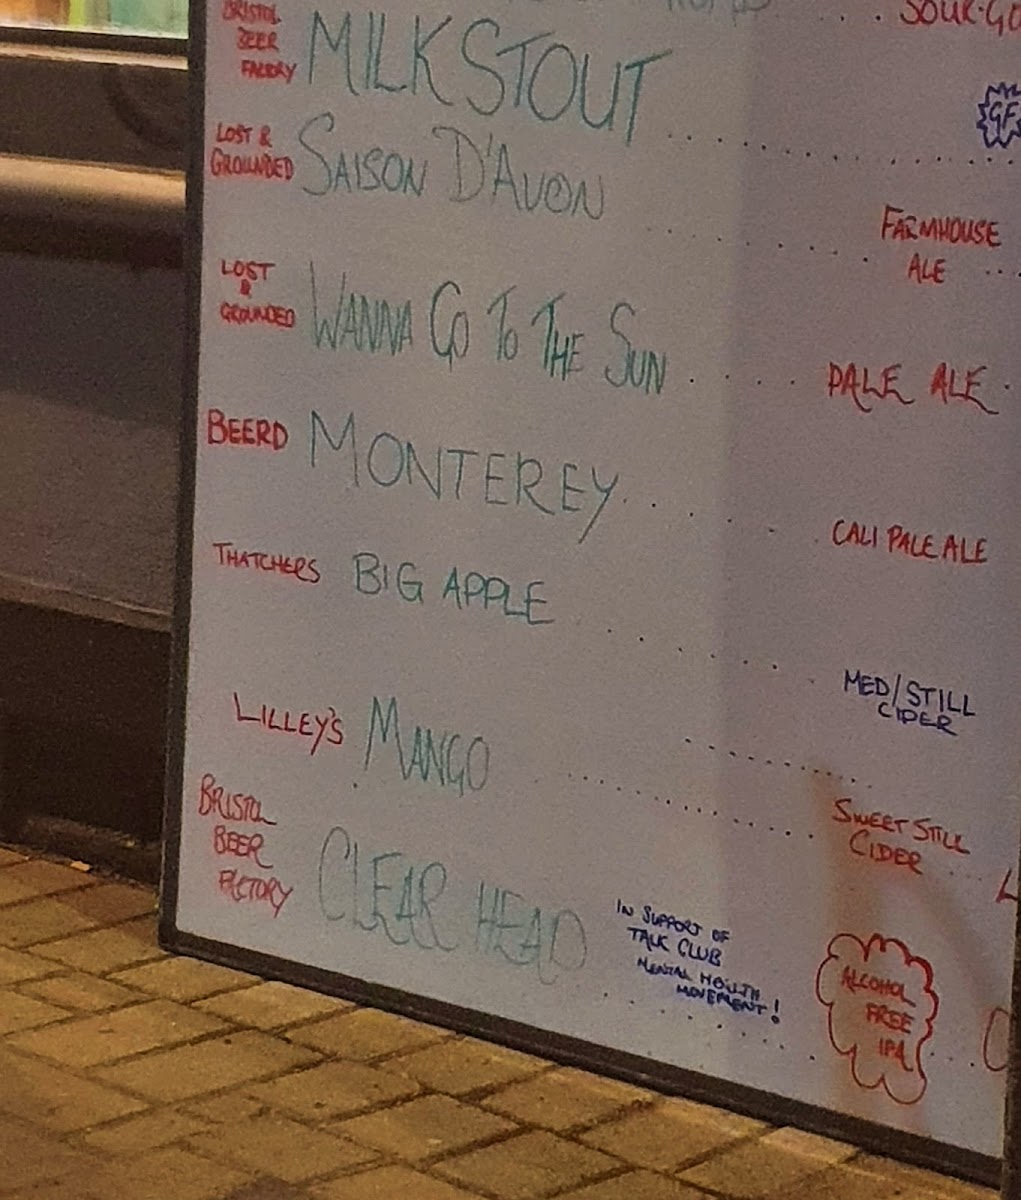 SOUR·GO
BRISTOL
BEER
FACTORY
MILK STOUT
GF
LOST &
GROUNDED
SAISON D'AVON
FARMHOUSE
ALE
LOST
&
GROUNDED
WANNA GO TO THE SUN
PALE ALE
BEERD
MONTEREY
CALI PALE ALE
THATCHERS
BIG APPLE
MED/STILL
CIDER
LILLEY'S
MANGO
SWEET STILL
CIDER
BRISTOL
BEER
FACTORY
CLEAR HEAD
IN SUPPORT OF
TALK CLUB
MENTAL HEALTH
MOVEMENT!
ALCOHOL
FREE
IPA